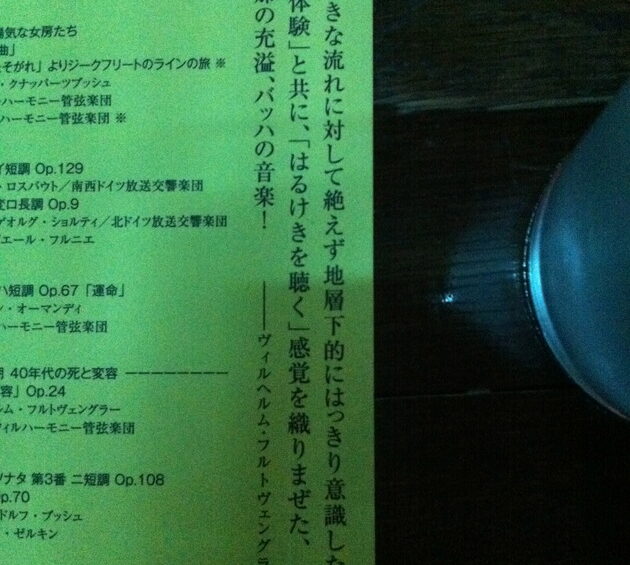 陽気な女房たち
曲」
そがれ」よりジークフリートのラインの旅 ※
・クナッパーツブッシュ
ハーモニー管弦楽団
ハーモニー管弦楽団 ※
イ短調 Op.129
・ロスバウト／南西ドイツ放送交響楽団
変ロ長調 Op.9
ゲオルグ・ショルティ／北ドイツ放送交響楽団
エール・フルニエ
ハ短調 Op.67「運命」
ン・オーマンディ
ハーモニー管弦楽団
40年代の死と変容 ————————
容」Op.24
ルム・フルトヴェングラー
フィルハーモニー管弦楽団
ソナタ 第3番 ニ短調 Op.108
Op.70
ドルフ・ブッシュ
・ゼルキン
きな流れに対して絶えず地層下的にはっきり意識した
体験」と共に、「はるけきを聴く」感覚を織りまぜた、
の充溢、バッハの音楽！ ——ヴィルヘルム・フルトヴェングラ